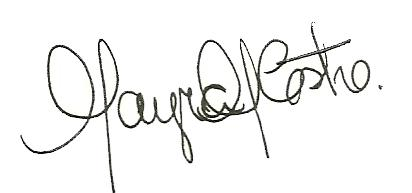 Mayra Castro.